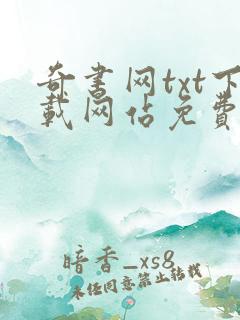 奇书网txt下
載网佔免費
暗香_xs8
未经同意禁止转载